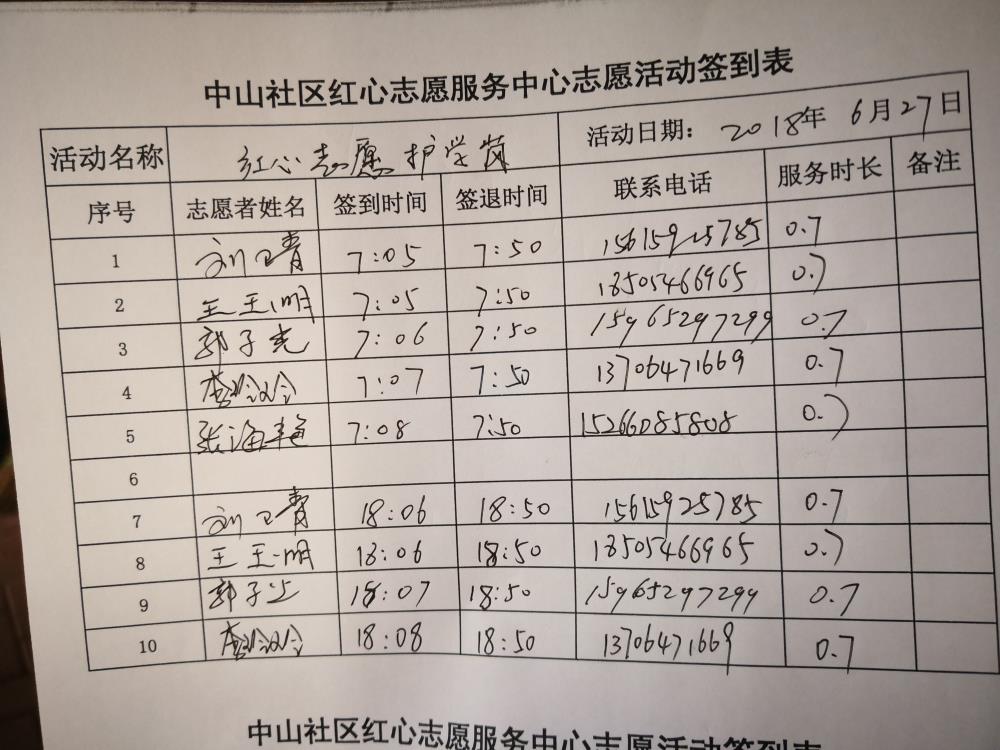 中山社区红心志愿服务中心志愿活动签到表
活动名称 红心志愿护学岗 活动日期: 2018年 6月27日
序号 志愿者姓名 签到时间 签退时间 联系电话 服务时长 备注
1 刘卫青 7:05 7:50 15615925785 0.7
2 王玉明 7:05 7:50 18505466965 0.7
3 郭子光 7:06 7:50 15965297299 0.7
4 7:07 7:50 13706471669 0.7
5 张海艳 7:08 7:50 15266085808 0.7
6
7 刘卫青 18:06 18:50 15615925785 0.7
8 王玉明 18:06 18:50 18505466965 0.7
9 郭子光 18:07 18:50 15965297299 0.7
10 18:08 18:50 13706471669 0.7
中山社区红心志愿服务中心志愿活动签到表